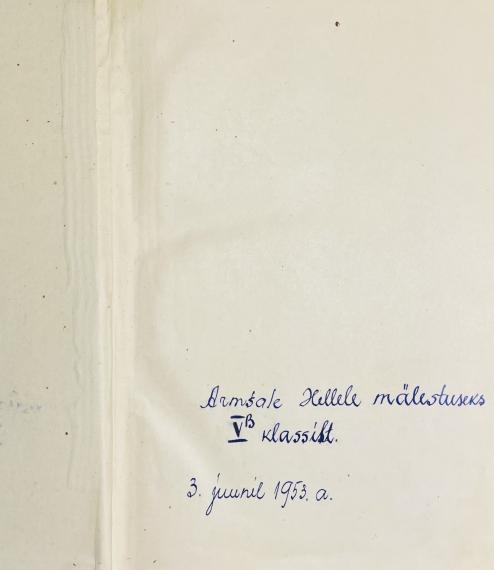 Armsale Hellele mälestuseks
V B klassilt.
3. juunil 1953. a.